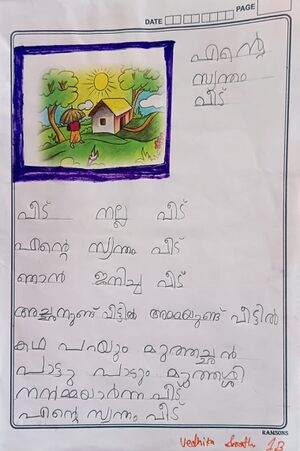 DATE
PAGE
എന്റെ
സ്വന്തം
വീട്
വീട് നല്ല വീട്
എന്റെ സ്വന്തം വീട്
ഞാൻ ജനിച്ച വീട്
അച്ഛനുണ്ട് വീട്ടിൽ അമ്മയുണ്ട് വീട്ടിൽ
കഥ പറയും മുത്തച്ഛൻ
പാട്ടു പാടും മുത്തശ്ശി
നന്മയാർന്ന വീട്
എന്റെ സ്വന്തം വീട്
RAMSONS
Vedhika 1B